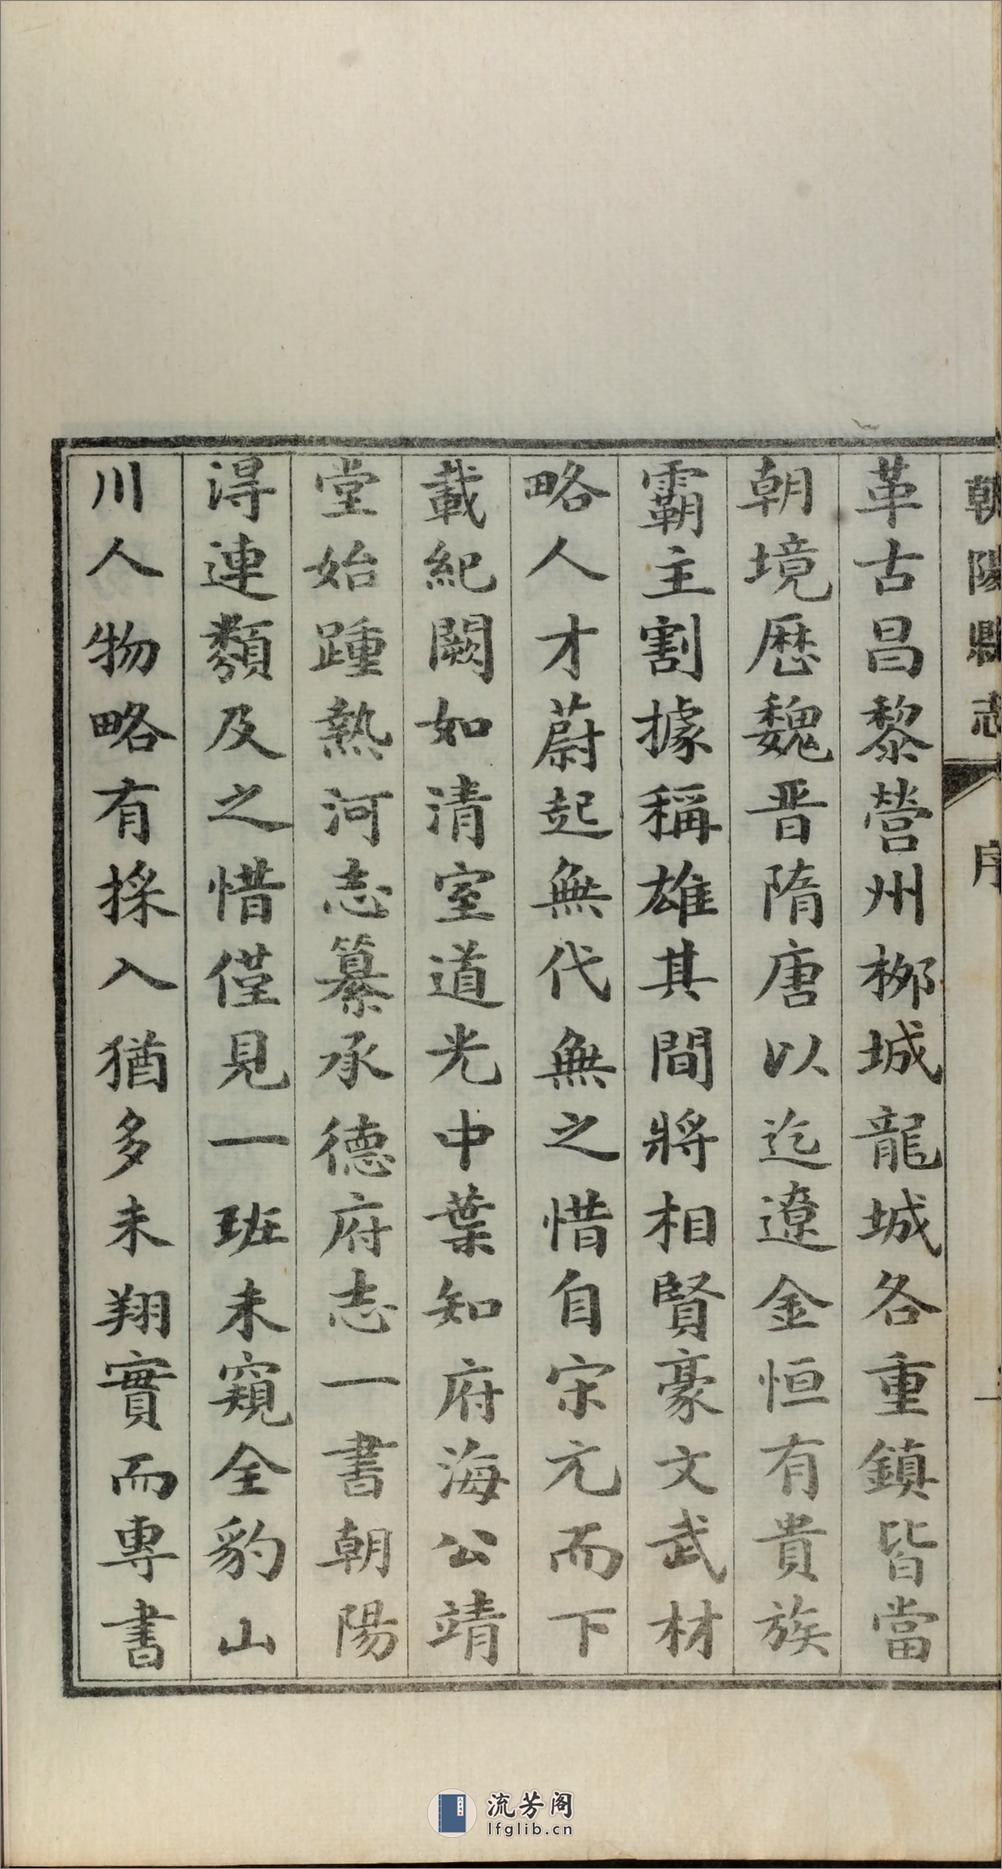 朝陽縣志 序
革古昌黎營州栁城龍城各重鎮皆當
朝境歷魏晋隋唐以迄遼金恒有貴族
霸主割據稱雄其間將相賢豪文武材
略人才蔚起無代無之惜自宋元而下
載紀闕如清室道光中葉知府海公靖
堂始踵熱河志纂承德府志一書朝陽
淂連類及之惜僅見一班未窺全豹山
川人物略有採入猶多未翔實而專書
流芳阁
lfglib.cn